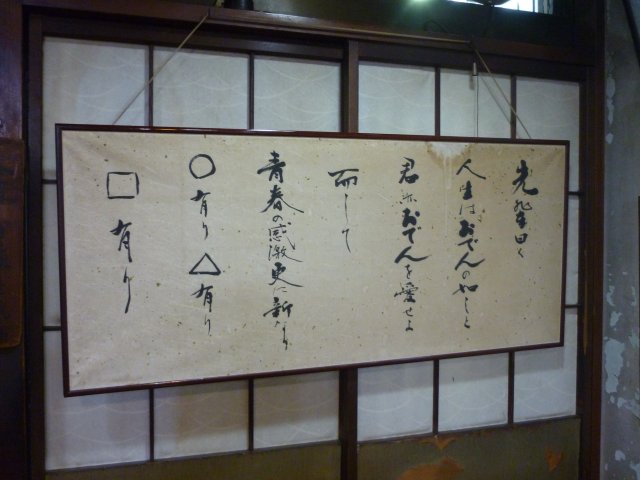 先輩曰く
人生はおでんの如しと
君亦おでんを愛せよ
而して
青春の感激更に新なり
○有り△有り
□有り